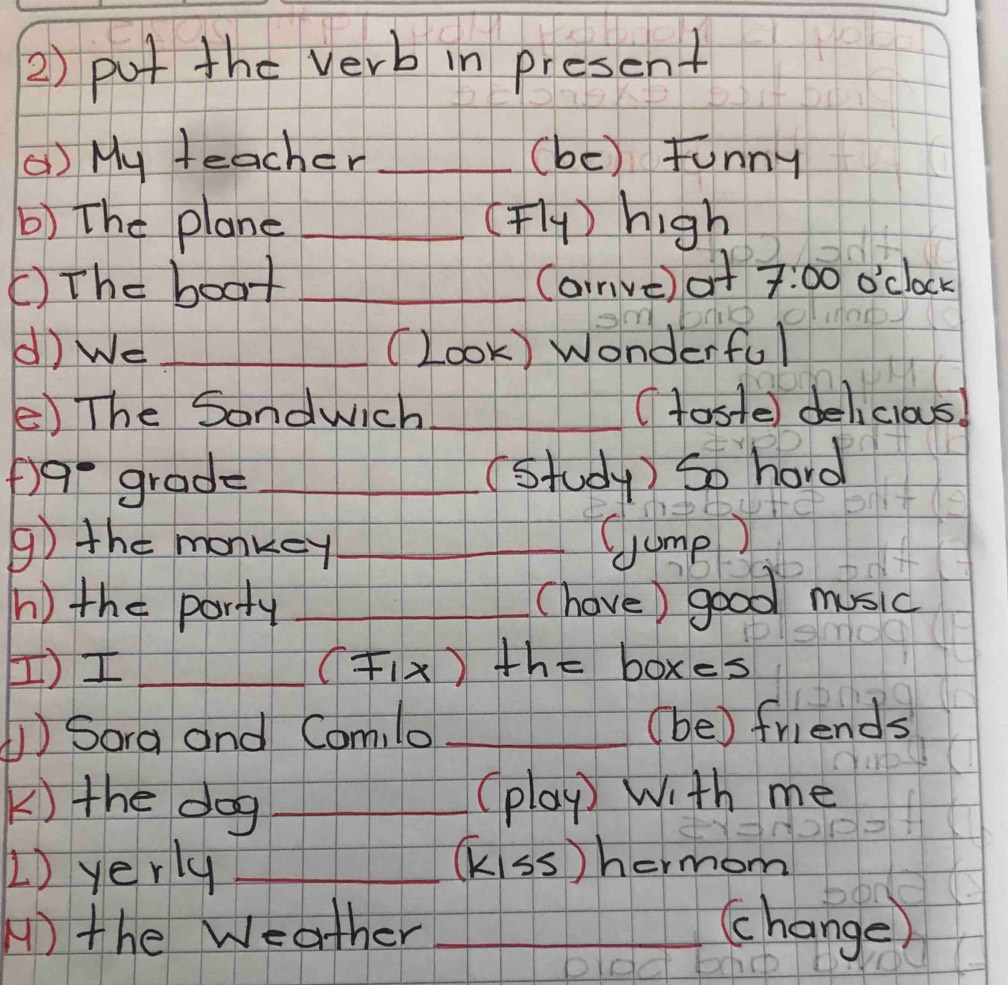 2) put the verb in present
a) My teacher ______ (be) Funny
b) The plane ______ (Fly) high
c) The boat ______ (arrive) at 7:00 o'clock
d) We ______ (Look) Wonderful
e) The Sandwich ______ (taste) delicious!
f) 9° grade ______ (Study) So hard
g) the monkey ______ (jump)
h) the party ______ (have) good music
I) I ______ (Fix) the boxes
J) Sara and Camilo ______ (be) friends
K) the dog ______ (play) With me
L) yerly ______ (kiss) hermom
M) the Weather ______ (change)